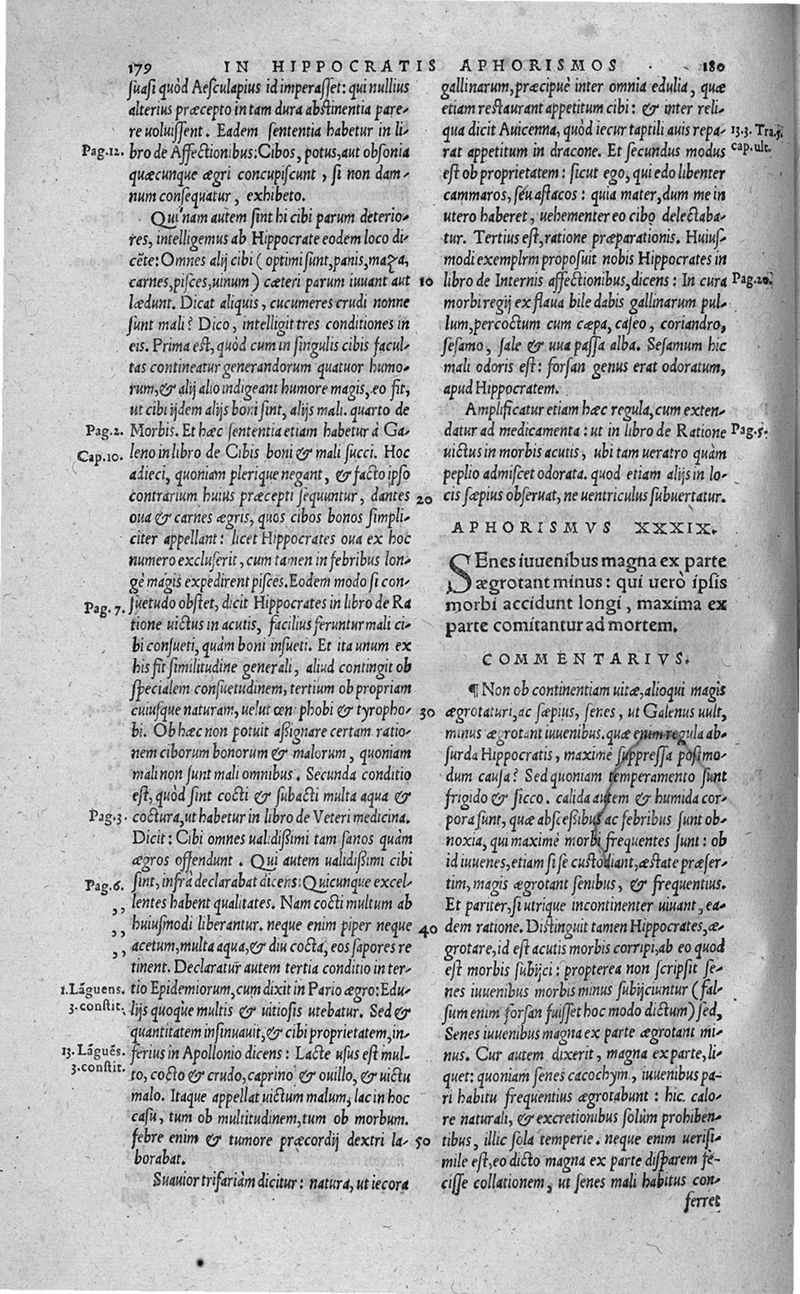 179 IN HIPPOCRATIS APHORISMOS 180
suasi quòd Aesculapius id imperasset: qui nullius
alterius præcepto in tam dura abstinentia pare-
re uoluissent. Eadem sententia habetur in li-
Pag.12. bro de Affectionibus: Cibos, potus, aut obsonia
quæcunque ægri concupiscunt, si non dam-
num consequatur, exhibeto.
Qui nam autem sint hi cibi parum deterio-
res, intelligemus ab Hippocrate eodem loco di-
cẽte: Omnes alij cibi (optimi sunt, panis, maza,
carnes, pisces, uinum) cæteri parum iuuant aut 10
lædunt. Dicat aliquis, cucumeres crudi nonne
sunt mali? Dico, intelligit tres conditiones in
eis. Prima est, quòd cum in singulis cibis facul-
tas contineatur generandorum quatuor humo-
rum, & alij alio indigeant humore magis, eo fit,
ut cibi ijdem alijs boni sint, alijs mali. quarto de
Pag.2. Morbis. Et hæc sententia etiam habetur à Ga-
Cap.10. leno in libro de Cibis boni & mali succi. Hoc
adieci, quoniam plerique negant, & facto ipso
contrarium huius præcepti sequuntur, dantes 20
oua & carnes ægris, quos cibos bonos simpli-
citer appellant: licet Hippocrates oua ex hoc
numero excluserit, cum tamen in febribus lon-
gè magis expedirent pisces. Eodem modo si con-
Pag. 7. suetudo obstet, dicit Hippocrates in libro de Ra
tione uictus in acutis, facilius feruntur mali ci-
bi consueti, quàm boni insueti. Et ita unum ex
his fit similitudine generali, aliud contingit ob
specialem consuetudinem, tertium ob propriam
cuiusque naturam, uelut œnophobi & tyropho- 30
bi. Ob hæc non potuit assignare certam ratio-
nem ciborum bonorum & malorum, quoniam
mali non sunt mali omnibus. Secunda conditio
est, quòd sint cocti & subacti multa aqua &
Pag.3. coctura, ut habetur in libro de Veteri medicina.
Dicit: Cibi omnes ualidissimi tam sanos quàm
ægros offendunt. Qui autem ualidissimi cibi
Pag.6. sint, infrà declarabat dicens: Quicunque excel-
,, lentes habent qualitates. Nam cocti multum ab
,, huiusmodi liberantur. neque enim piper neque 40
,, acetum, multa aqua, & diu cocta, eos sapores re
tinent. Declaratur autem tertia conditio in ter-
1.Lãguens. tio Epidemiorum, cum dixit in Pario ægro: Edu-
3.constit. lijs quoque multis & uitiosis utebatur. Sed &
quantitatem insinuauit, & cibi proprietatem, in-
13. Lãguẽs. ferius in Apollonio dicens: Lacte usus est mul-
3.constit. to, cocto & crudo, caprino & ouillo, & uictu
malo. Itaque appellat uictum malum, lac in hoc
casu, tum ob multitudinem, tum ob morbum.
febre enim & tumore præcordij dextri la- 50
borabat.
Suauior trifariàm dicitur: natura, ut iecora
gallinarum, præcipuè inter omnia edulia, quæ
etiam restaurant appetitum cibi: & inter reli-
qua dicit Auicenna, quòd iecur taptili auis repa- 13.3. Tra.5.
rat appetitum in dracone. Et secundus modus cap.ult.
est ob proprietatem: sicut ego, qui edo libenter
cammaros, séu astacos: quia mater, dum me in
utero haberet, uehementer eo cibo delectaba-
tur. Tertius est, ratione præparationis. Huius-
modi exemplrm proposuit nobis Hippocrates in
libro de Internis affectionibus, dicens: In cura Pag.20.
morbi regij ex flaua bile dabis gallinarum pul-
lum, percoctum cum cæpa, caseo, coriandro,
sesamo, sale & uua passa alba. Sesamum hic
mali odoris est: forsan genus erat odoratum,
apud Hippocratem.
Amplificatur etiam hæc regula, cum exten-
datur ad medicamenta: ut in libro de Ratione Pag.5.
uictus in morbis acutis, ubi tam ueratro quàm
peplio admiscet odorata. quod etiam alijs in lo-
cis sæpius obseruat, ne uentriculus subuertatur.
APHORISMVS XXXIX.
SEnes iuuenibus magna ex parte
ægrotant minus: qui uerò ipsis
morbi accidunt longi, maxima ex
parte comitantur ad mortem.
COMMENTARIVS.
¶ Non ob continentiam uitæ, alioqui magis
ægrotaturi, ac sæpius, senes, ut Galenus uult,
minus ægrotant iuuenibus. quæ enim regula ab-
surda Hippocratis, maximè suppressa postmo-
dum causa? Sed quoniam temperamento sunt
frigido & sicco. calida autem & humida cor-
pora sunt, quæ abscessibus ac febribus sunt ob-
noxia, qui maximè morbi frequentes sunt: ob
id iuuenes, etiam si se custodiant, æstate præser-
tim, magis ægrotant senibus, & frequentius.
Et pariter, si utrique incontinenter uiuant, ea-
dem ratione. Distinguit tamen Hippocrates, æ-
grotare, id est acutis morbis corripi, ab eo quod
est morbis subijci: propterea non scripsit se-
nes iuuenibus morbis minus subijciuntur (fal-
sum enim forsan fuisset hoc modo dictum) sed,
Senes iuuenibus magna ex parte ægrotant mi-
nus. Cur autem dixerit, magna ex parte, li-
quet: quoniam senes cacochym, iuuenibus pa-
ri habitu frequentius ægrotabunt: hic. calo-
re naturali, & excretionibus solùm prohiben-
tibus, illic sola temperie. neque enim uerisi-
mile est, eo dicto magna ex parte disparem fe-
cisse collationem, ut senes mali habitus con-
ferret